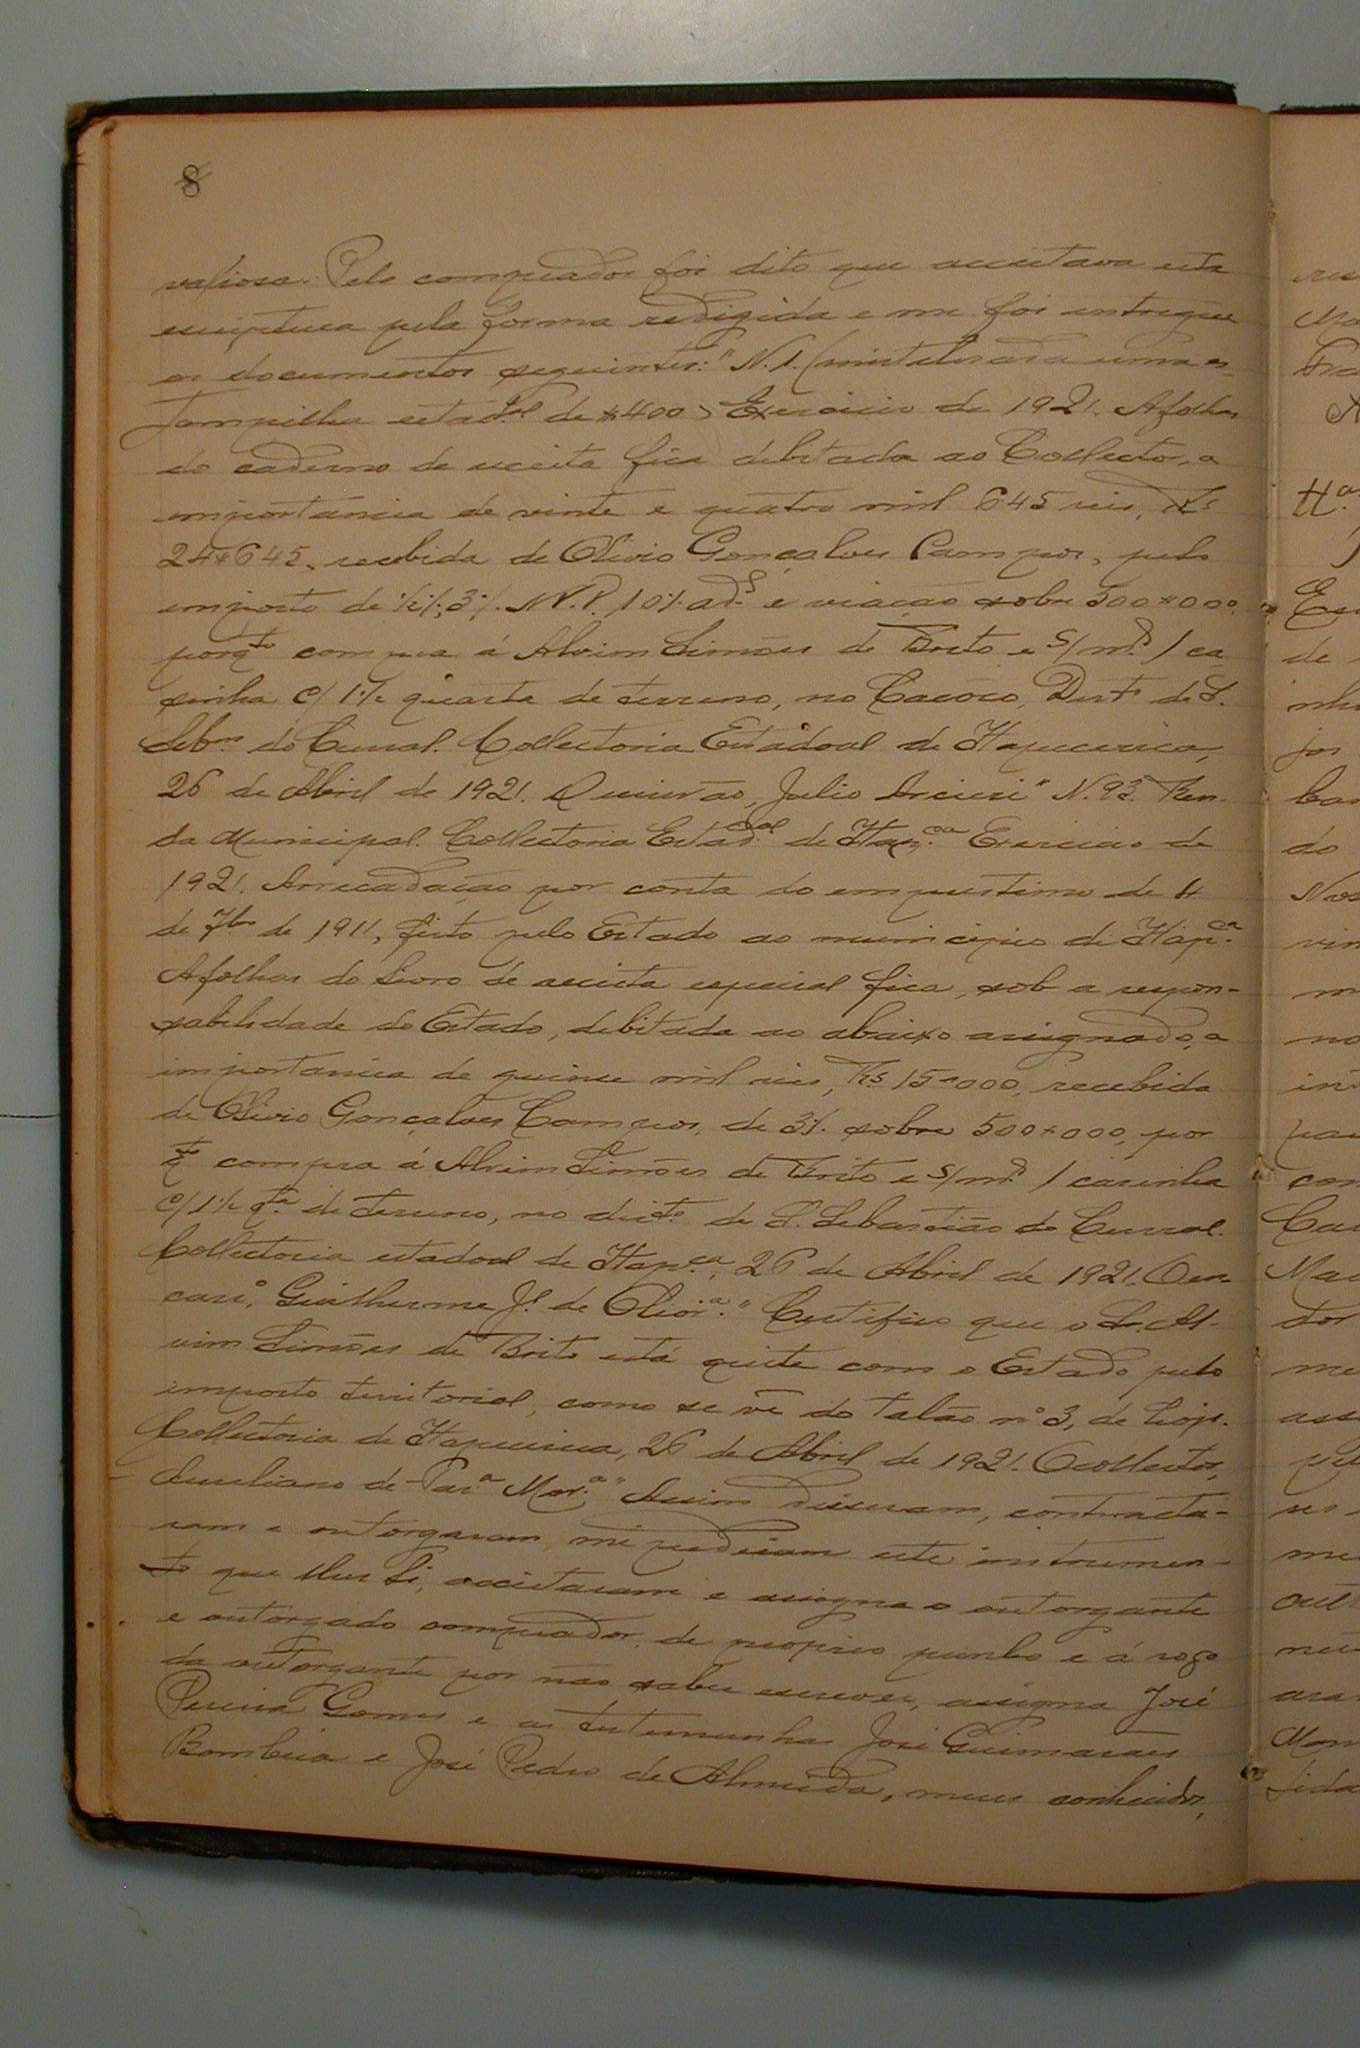 8
valiosa. Pelo comprador foi dito que acceitava esta
escriptura pela forma redigida e me foi entregue
os documentos seguintes: "N. 1. (inutilisada uma es-
tampilha estad.al de $400) Exercicio de 1921. A folhas
do caderno de receita fica debitada ao Collector, a
importancia de vinte e quatro mil 645 reis, Rs
24$645, recebida de Olivio Gonçalves Campos, pelo
imposto de 3%. N.P. 10% ad.s e viação sobre 500$000
porq.to compra á Alvim Simões de Brito e s/m.er 1 ca-
sinha c/ 1 1/2 quarta de terreno, no Cacoco, Dist.o de S.
Seb.m do Curral. Collectoria Estadoal de Itapecerica,
26 de Abril de 1921. O escrivão, Julio " N. 93. Ren-
da Municipal. Collectoria Estad.oal de Itap.ca Exercicio de
1921. Arrecadação por conta do emprestimo de 4
de 7bro de 1911, feito pelo Estado ao municipio de Itap.ca
A folhas do livro de receita especial fica, sob a respon-
sabilidade do Estado, debitada ao abaixo assignado, a
importancia de quinse mil reis, Rs 15$000, recebida
de Olivio Gonçalves Campos, de 3% sobre 500$000, por
q.to compra á Alvim Simões de Brito e s/m.er 1 casinha
c/ 1 1/2 q.ta de terreno, no dist.o de S. Sebastião do Curral.
Collectoria estadoal de Itap.ca, 26 de Abril de 1921. O en-
carr.o, Guilherme J.e de Oliv.ra." Certifico que o Sr. Al-
vim Simões de Brito está quite com o Estado pelo
imposto territorial, como se vê do talão nº 3, de hoje.
Collectoria de Itapecerica, 26 de Abril de 1921. O collector,
Aureliano de Mor.a" Assim disseram, contracta-
ram e outorgaram, me pediram este instrumen-
to que lhes li, acceitaram e assigna o outorgante
e outorgado comprador, de proprio punho e á rogo
da outorgante por não saber escrever, assigna José
Pereira Gomes e as testemunhas José Guimarães
e José Pedro de Almeida, meus conhecidos,